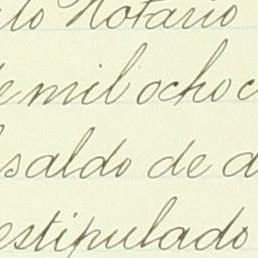 Notario
de mil ocho
saldo de a
estipulado